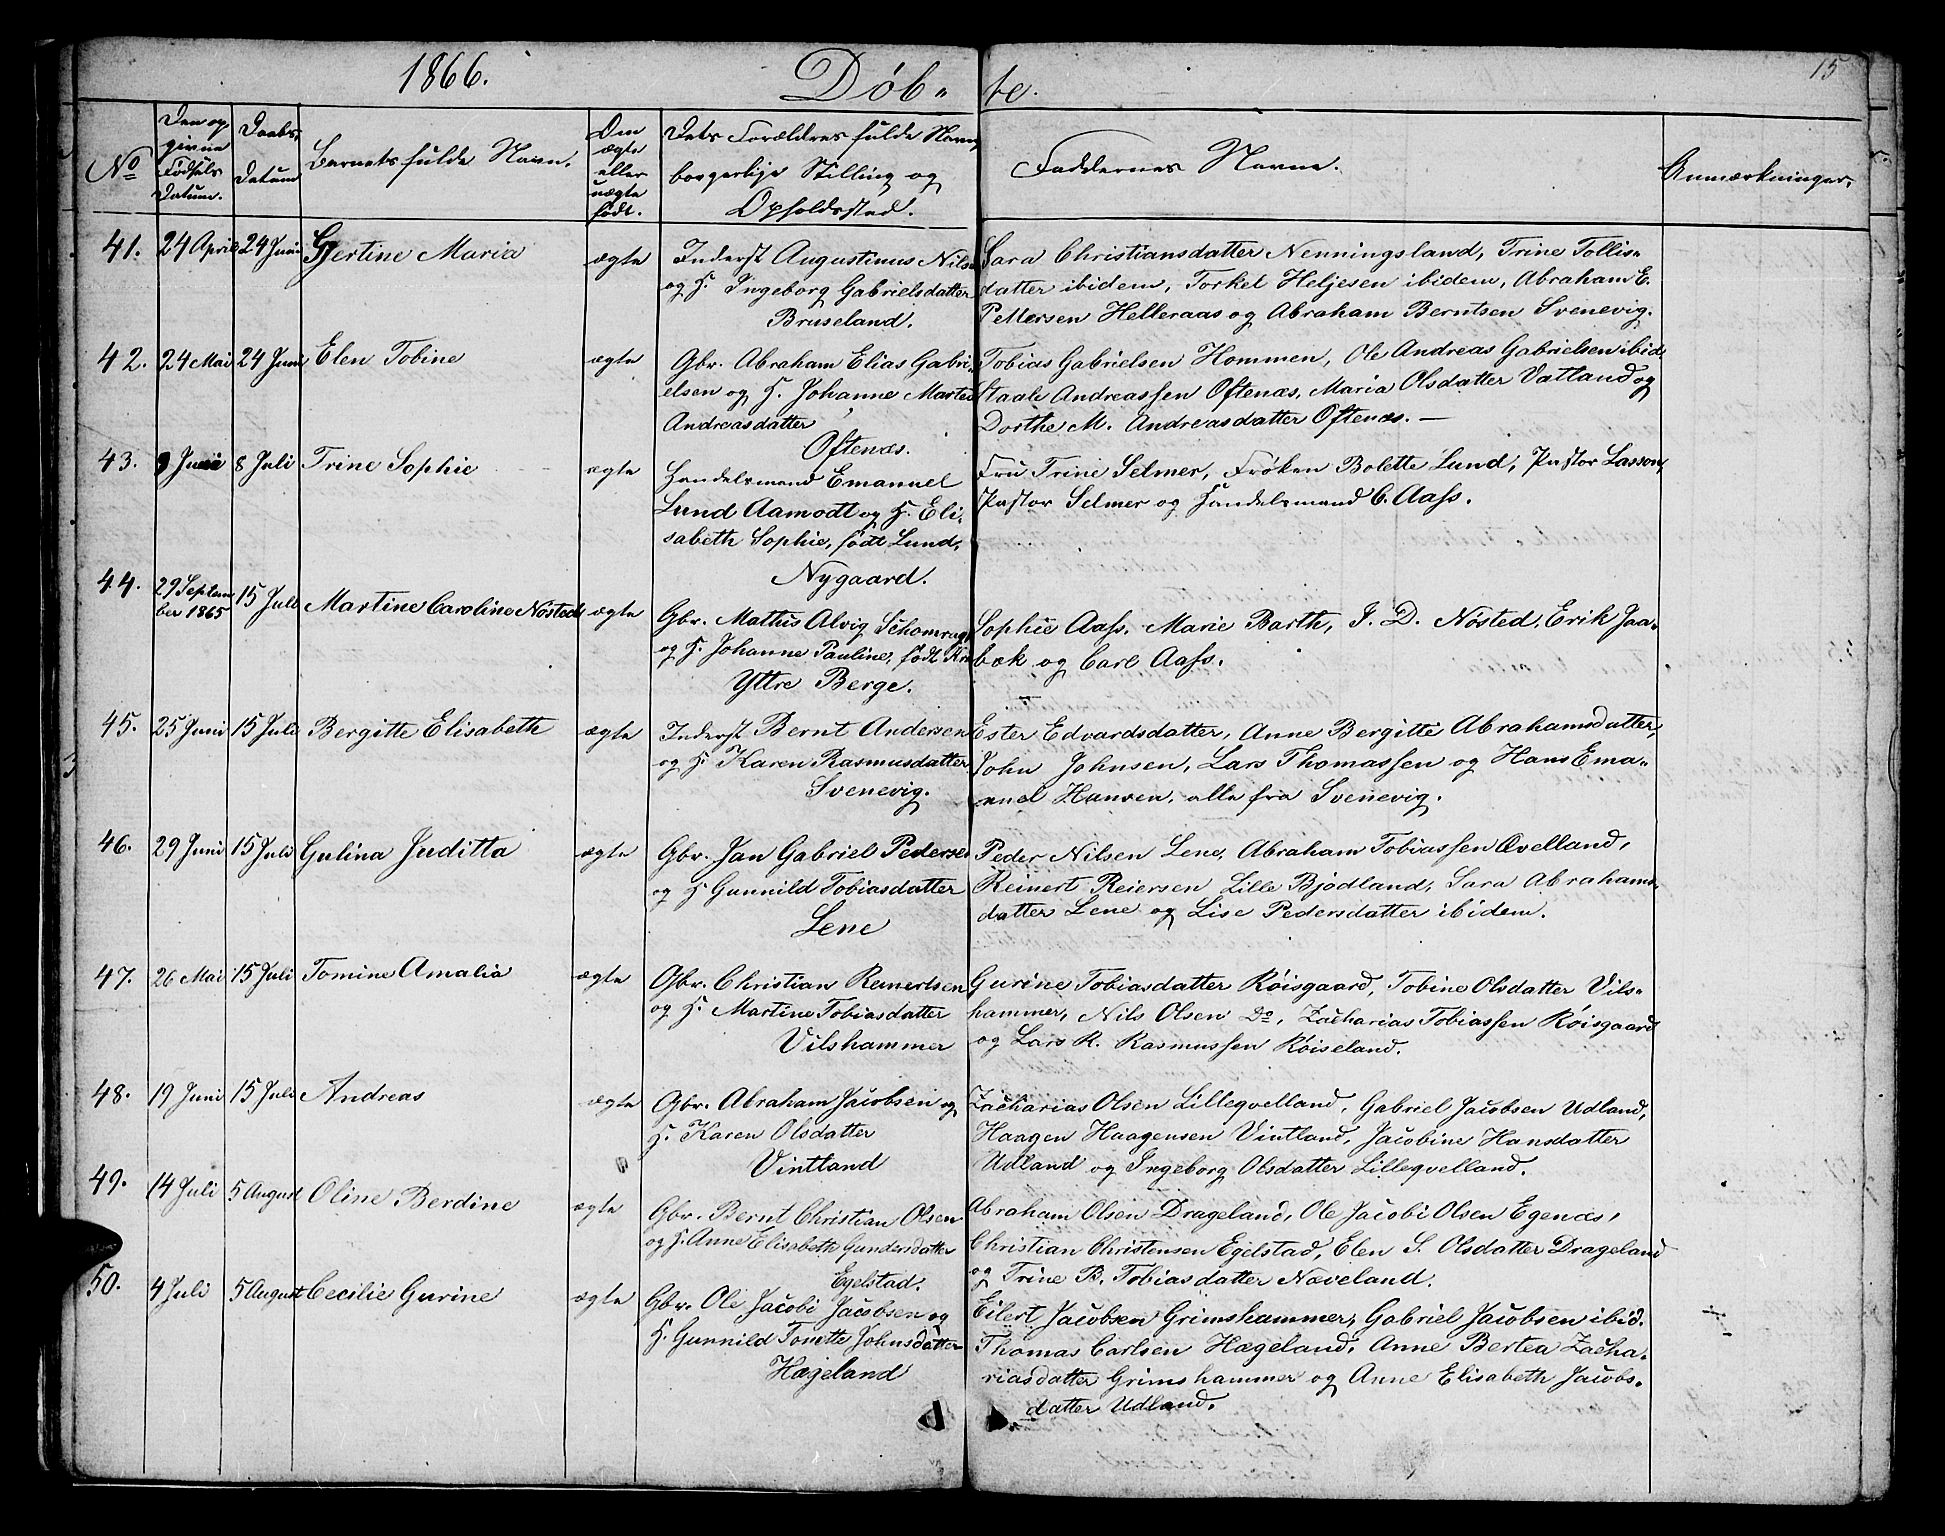 1866. Døb- te. 15
No
Den op
givne
Fødsels
Datum.
Daabs,
Datum
Barnets fulde Navn.
Om
ægte
eller
uægte
født.
Dets Forældres fulde Navn,
borgerlige Stilling og
Opholdssted.
Faddernes Navne.
Anmærkninger.
41. 24 April 24 Juni Gjertine Maria ægte
Inderst Augustinus Nilsen
og H. Ingeborg Gabrielsdatter
Bruseland.
Sara Christiansdatter Nenningsland, Trine Tollis-
datter ibidem, Torkel Heljesen ibidem, Abraham E.
Pettersen Helleraas og Abraham Berntsen Svenevig.
42. 24 Mai 24 Juni Elen Tobine ægte
Gbr. Abraham Elias Gabri-
elsen og H. Johanne Martea
Andreasdatter
Oftenæs.
Tobias Gabrielsen Hommen, Ole Andreas Gabrielsen ibid
Staale Andreassen Oftenæs, Maria Olsdatter Vatland og
Dorthe M. Andreasdatter Oftenæs. —
43. 9 Juni 8 Juli Trine Sophie ægte
Handelsmand Emanuel
Lund Aamodt og H. Eli-
sabeth Sophie, født Lund,
Nygaard.
Fru Trine Selmer, Frøken Bolette Lund, Pastor Lasson,
Pastor Selmer og Handelsmand C. Aass.
44. 29 Septem
ber 1865 15 Juli Martine Caroline Nøsted ægte
Gbr. Mathis Alvig Schomrag,
og H. Johanne Pauline, født
Yttre Berge.
Sophie Aass, Marie Barth, J. D. Nøsted, Erik Jaa-
bæk og Carl Aass.
45. 25 Juni 15 Juli Bergitte Elisabeth ægte
Inderst Bernt Andersen
og H. Karen Rasmusdatter
Svenevig.
Ester Edvardsdatter, Anne Bergitte Abrahamsdatter,
John Johnsen, Lars Thomassen og Hans Ema-
nuel Hansen, alle fra Svenevig.
46. 29 Juni 15 Juli Gulina Juditta ægte
Gbr. Jan Gabriel Pedersen
og H Gunnild Tobiasdatter
Lene
Peder Nilsen Lene, Abraham Tobiassen Qvelland,
Reinert Reiersen Lille Bjødland, Sara Abrahams-
datter Lene og Lise Pedersdatter ibidem.
47. 26 Mai 15 Juli Tomine Amalia ægte
Gbr. Christian Reinertsen
og H. Martine Tobiasdatter
Vilshammer
Gurine Tobiasdatter Røisgaard, Tobine Olsdatter Vils-
hammer, Nils Olsen Do, Zacharias Tobiassen Røisgaard
og Lars R. Rasmussen Røiseland.
48. 19 Juni 15 Juli Andreas ægte
Gbr. Abraham Jacobsen og
H. Karen Olsdatter
Vintland
Zacharias Olsen Lilleqvelland, Gabriel Jacobsen Udland,
Haagen Haagensen Vintland, Jacobine Hansdatter
Udland og Ingeborg Olsdatter Lilleqvelland.
49. 14 Juli 5 August Oline Berdine ægte
Gbr. Bernt Christian Olsen
og H. Anne Elisabeth Gundersdatter
Egelstad.
Abraham Olsen Drageland, Ole Jacobi Olsen Egenæs,
Christian Christensen Egelstad, Elen S. Olsdatter Drageland
og Trine B. Tobiasdatter Næveland.
50. 4 Juli 5 August Cecilie Gurine ægte
Gbr. Ole Jacobi Jacobsen og
H. Gunnild Tomtte Johnsdatter
Hægeland
Eilert Jacobsen Grimshammer, Gabriel Jacobsen ibid.
Thomas Carlsen Hægeland, Anne Bertea Zacha-
riasdatter Grimshammer og Anne Elisabeth Jacobs-
datter Udland.